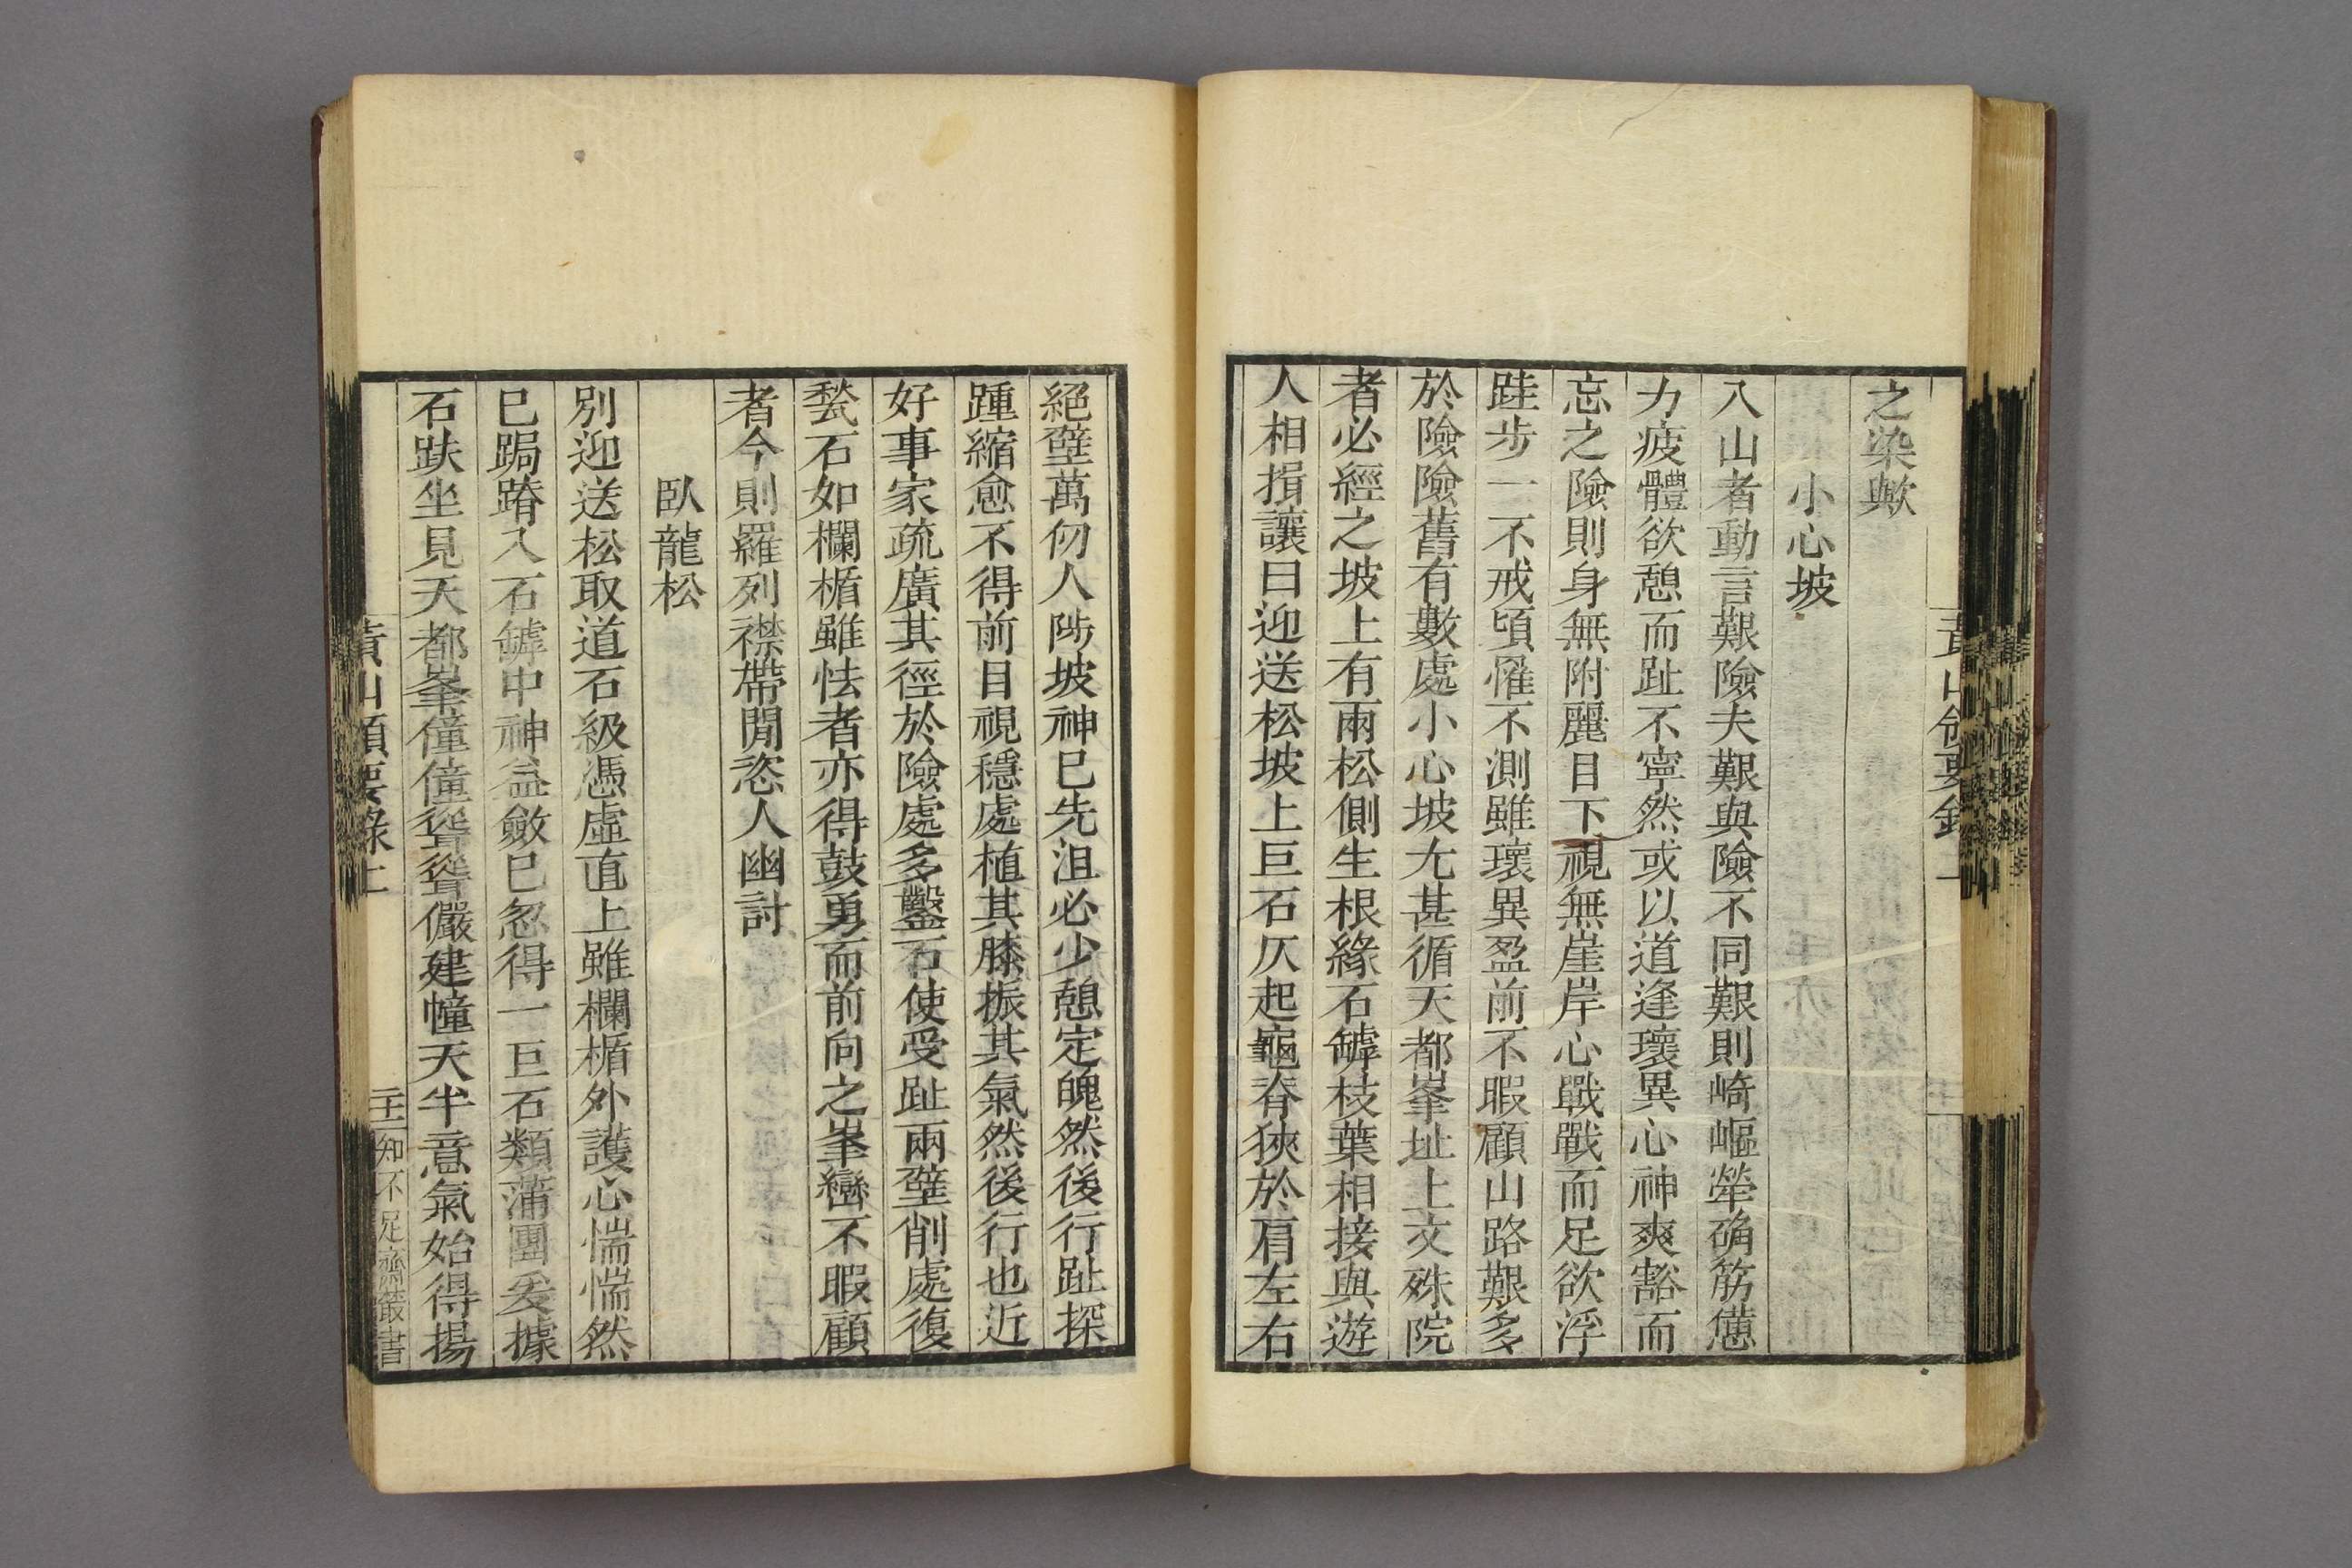 之染歟
小心坡
入山者動言艱險夫艱與險不同艱則崎嶇犖确筋憊
力疲體欲憩而趾不寧然或以道逢瓌異心神爽豁而
忘之險則身無附麗目下視無崖岸心戰戰而足欲浮
跬步一不戒頃罹不測雖瓌異盈前不暇顧山路艱多
於險險舊有數處小心坡尢甚循天都峯址上文殊院
者必經之坡上有兩松側生根緣石罅枝葉相接與遊
人相揖讓曰迎送松坡上巨石仄起龜脊狹於肩左右
絕壁萬仞人陟坡神已先沮必少憩定魄然後行趾探
踵縮愈不得前目視穩處植其膝振其氣然後行也近
好事家疏廣其徑於險處多鑿石使受趾兩壁削處復
甃石如欄楯雖怯者亦得鼓勇而前向之峯巒不暇顧
者今則羅列襟帶閒恣人幽討
臥龍松
別迎送松取道石級憑虛直上雖欄楯外護心惴惴然
已跼蹐入石罅中神益斂已忽得一巨石類蒲團爰據
石趺坐見天都峯僮僮聳聳儼建幢天半意氣始得揚
黃山領要錄上
知不足齋叢書